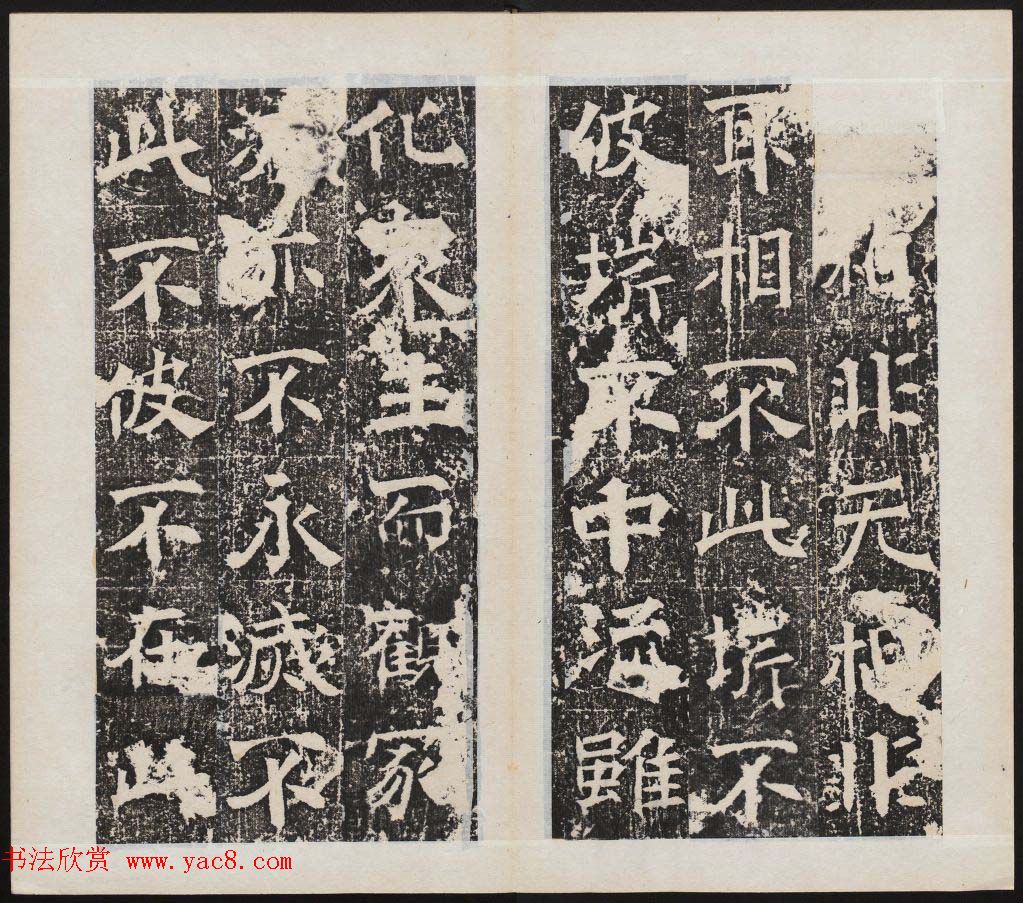 相非无相非
取相不此圻不
彼圻不中流雖
化衆生而觀寂
亦不永滅不
此不彼不在此
书法欣赏 www.yac8.com